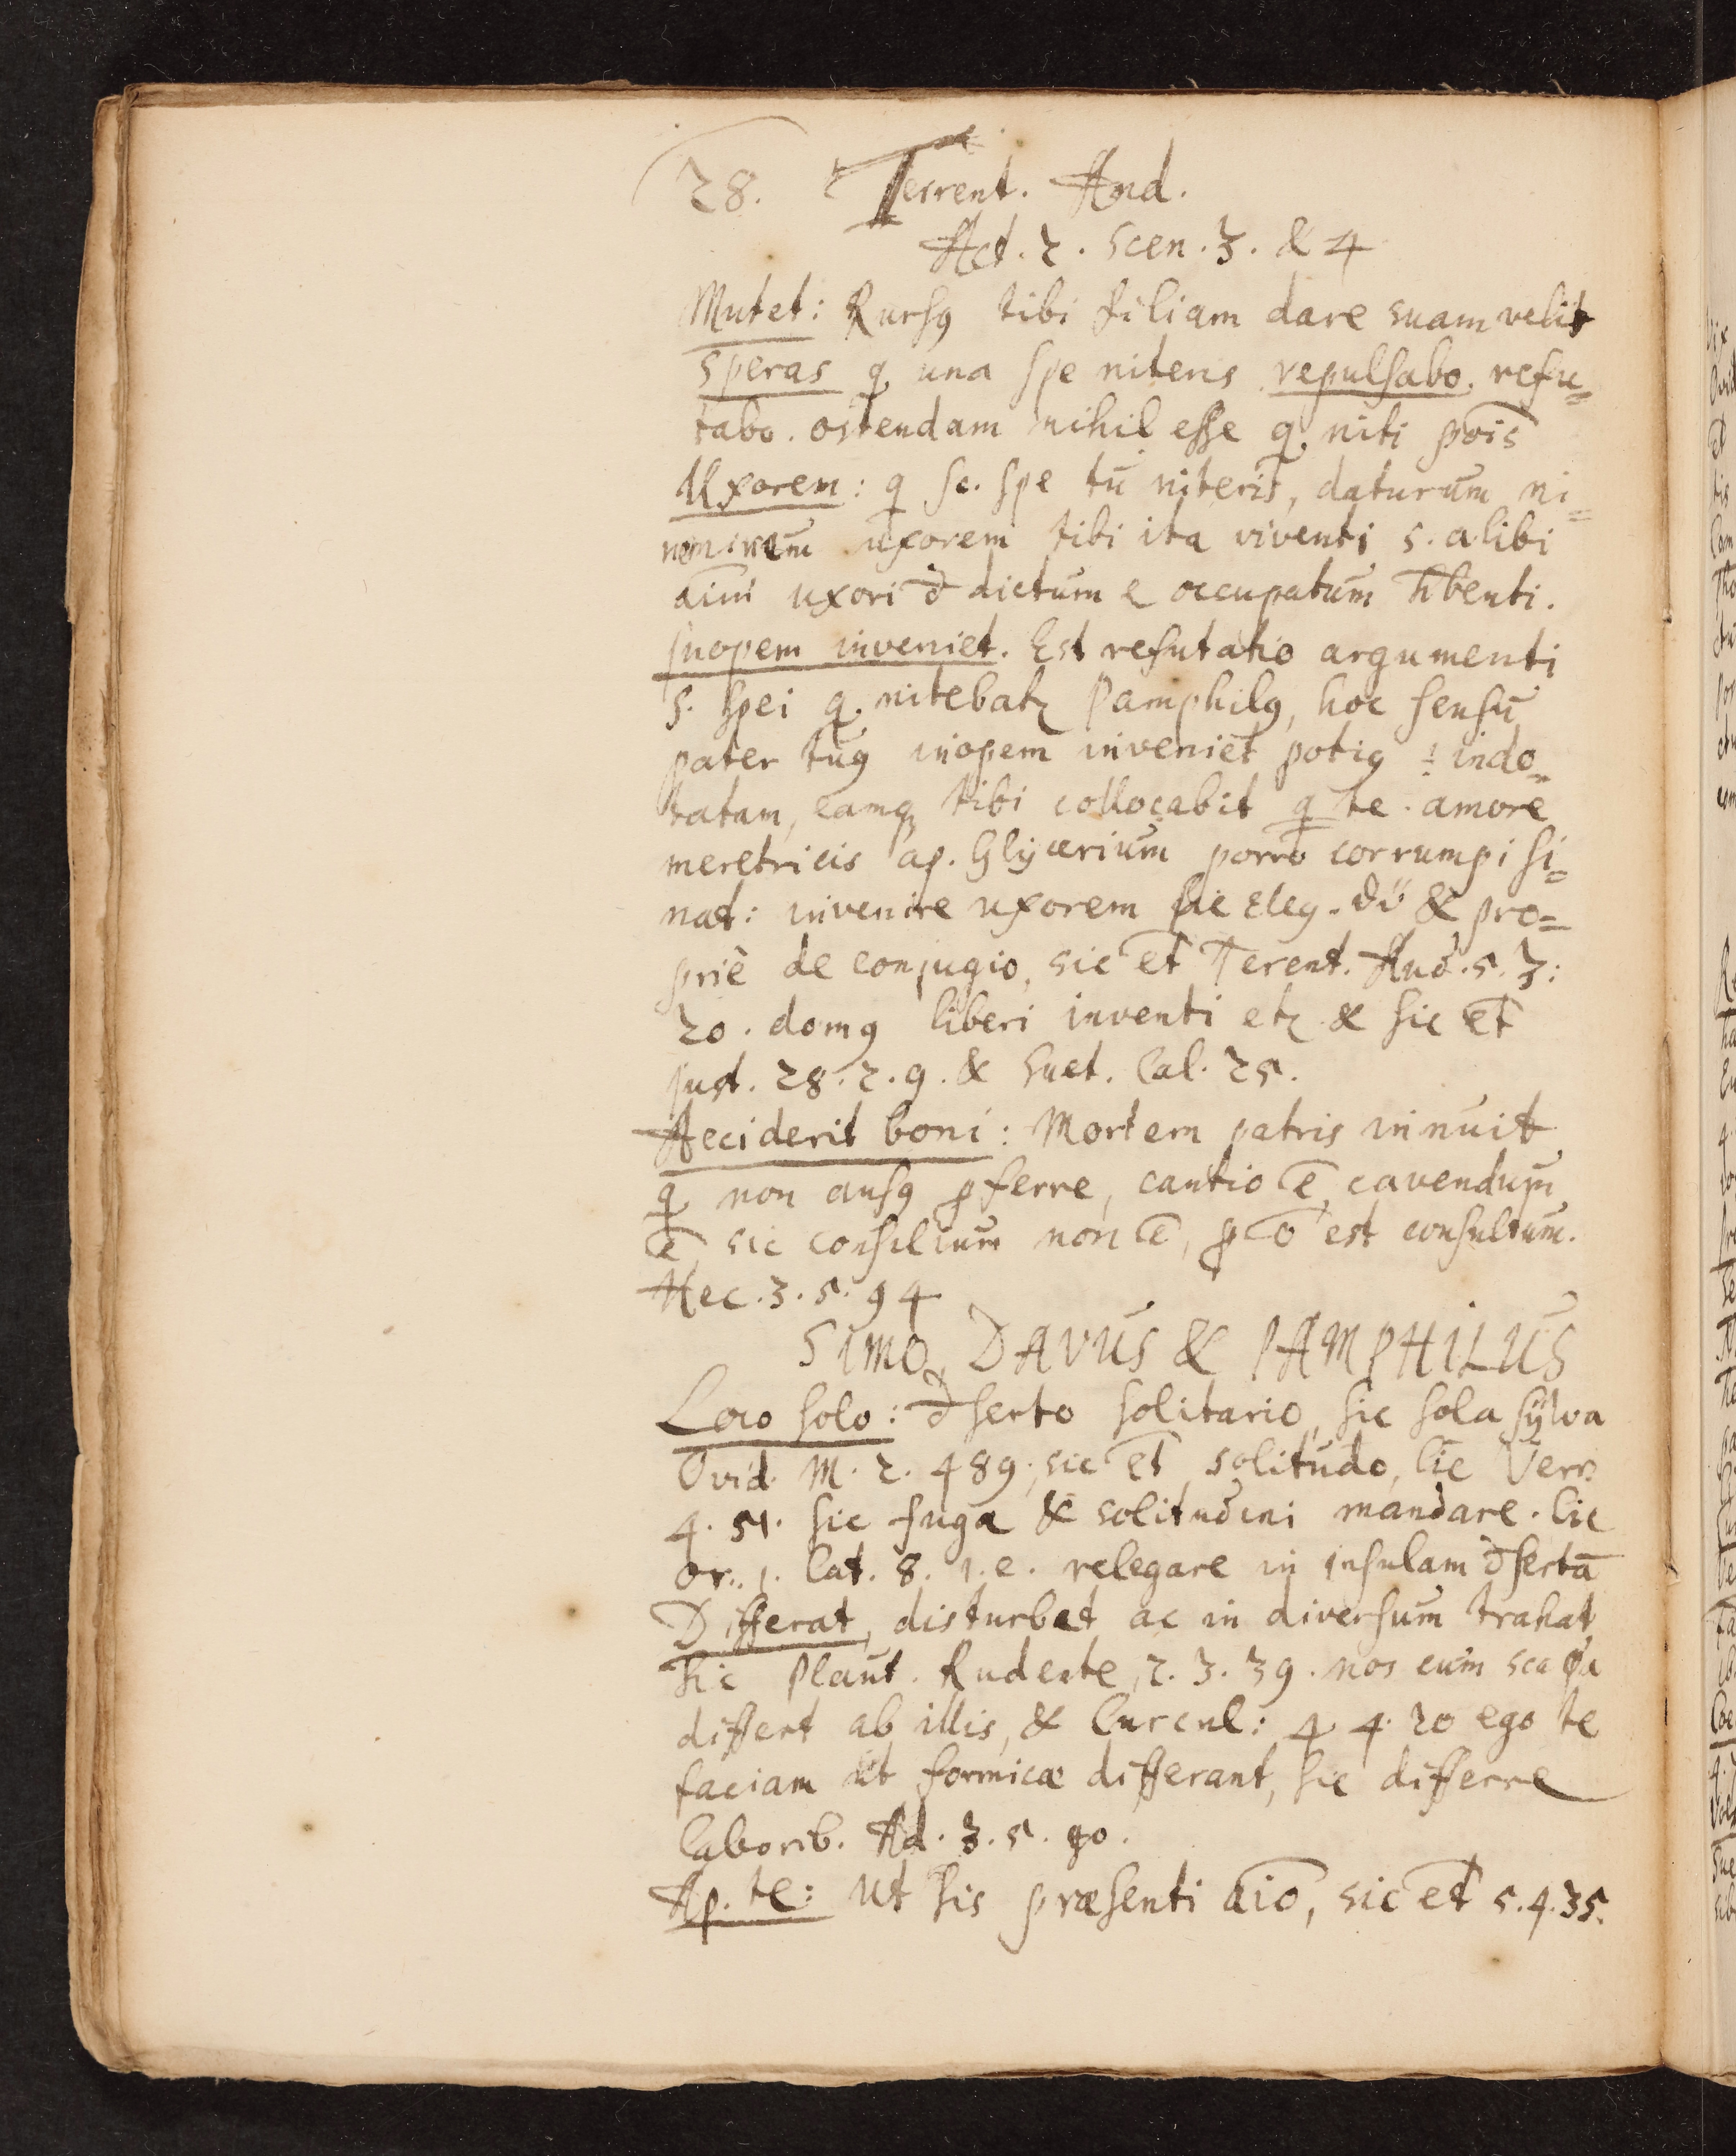 28. Terrent. And.
Act. 2. scen. 3. & 4
Mutet: Rursꝰ tibi filiam dare suam velit
speras q̣ una spe niteris repulsabo. refu=
tabo. ostendam nihil esse q̣ niti pois̄
Uxorem: q̣ sc. spe tu niteris, daturum ni=
neminem uxorem tibi ita viventi s. alibi
aīm uxori đ dictum e occupatum h̄benti.
Inopem inveniet. Est refutatio argumenti
s. spei q̣ nitebatꝛ Pamphilꝰ, hoc sensu
pater tuꝰ inopem inveniet potiꝰ indo=
tatam, eamq tibi collocabit q̣ te amore
meretricis ap. Glycerium porro corrumpi si=
nat: invenire uxorem sic eleg. & pro=
priè de conjugio, sic et̄ Terent. And. 5. 3:
20. domꝰ liberi inventi etꝛ & sic et̄
Just. 28. 2. 9. & Suet. Cal. 25.
Acciderit boni: Mortem patris innuit
q̣ non ausꝰ ꝓferre, cautio ē, cavendum
ē, sic consilium non ē, ꝓ ō est consultum.
Hec. 3. 5. 94
SIMO, DAVUS & PAMPHILUS
Loco solo: đserto solitario, sic sola sylva
Ovid. M. 7. 489. sic et̄ solitudo, Cic Verr.
4. 51. sic fuga & solitudini mandare. Cic
or. 1. Cat. 8. i.e. relegare in insulam đsertā
Differat, disturbet ac in diversum trahat
sic Plaut. Rudente, 2. 3. 39. nos cum scapha
differt ab illis, & Curcul: 4 4. 20 ego te
faciam ut formicæ differant, sic differre
laborib. Ad. 3. 5. 40.
Ap. te: ut sis præsenti aīo, sic et̄ 5. 4. 35.